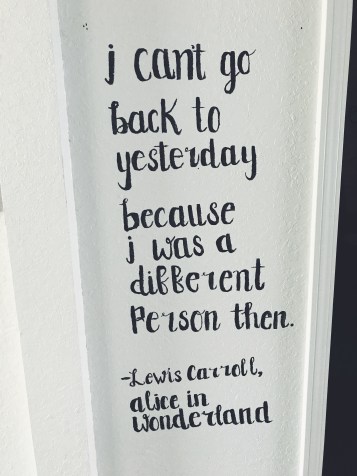 i can't go
back to
yesterday
because
i was a
different
Person then.
-Lewis Carroll,
alice in
wonderland